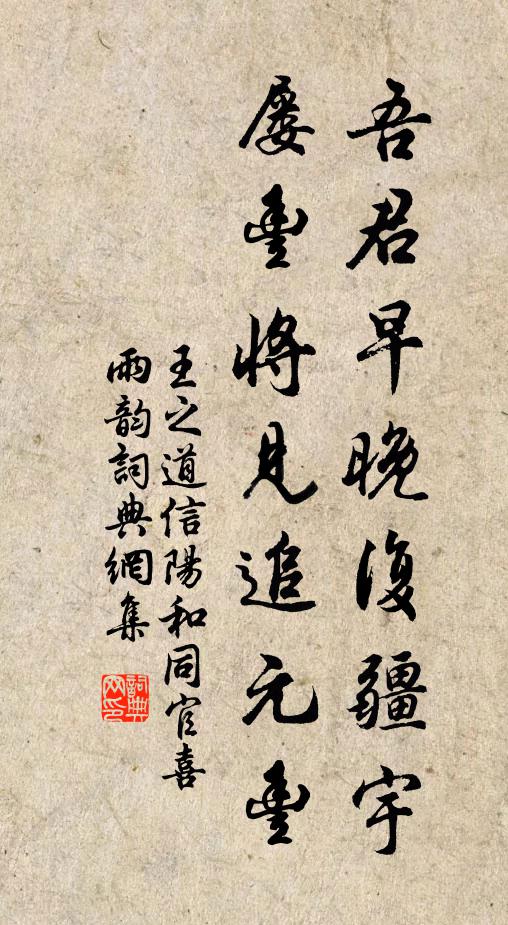 吾君早晚復疆宇
屡豐將見追元豐
王之道信陽和同官喜
雨韵詞典網集
詞典
网印